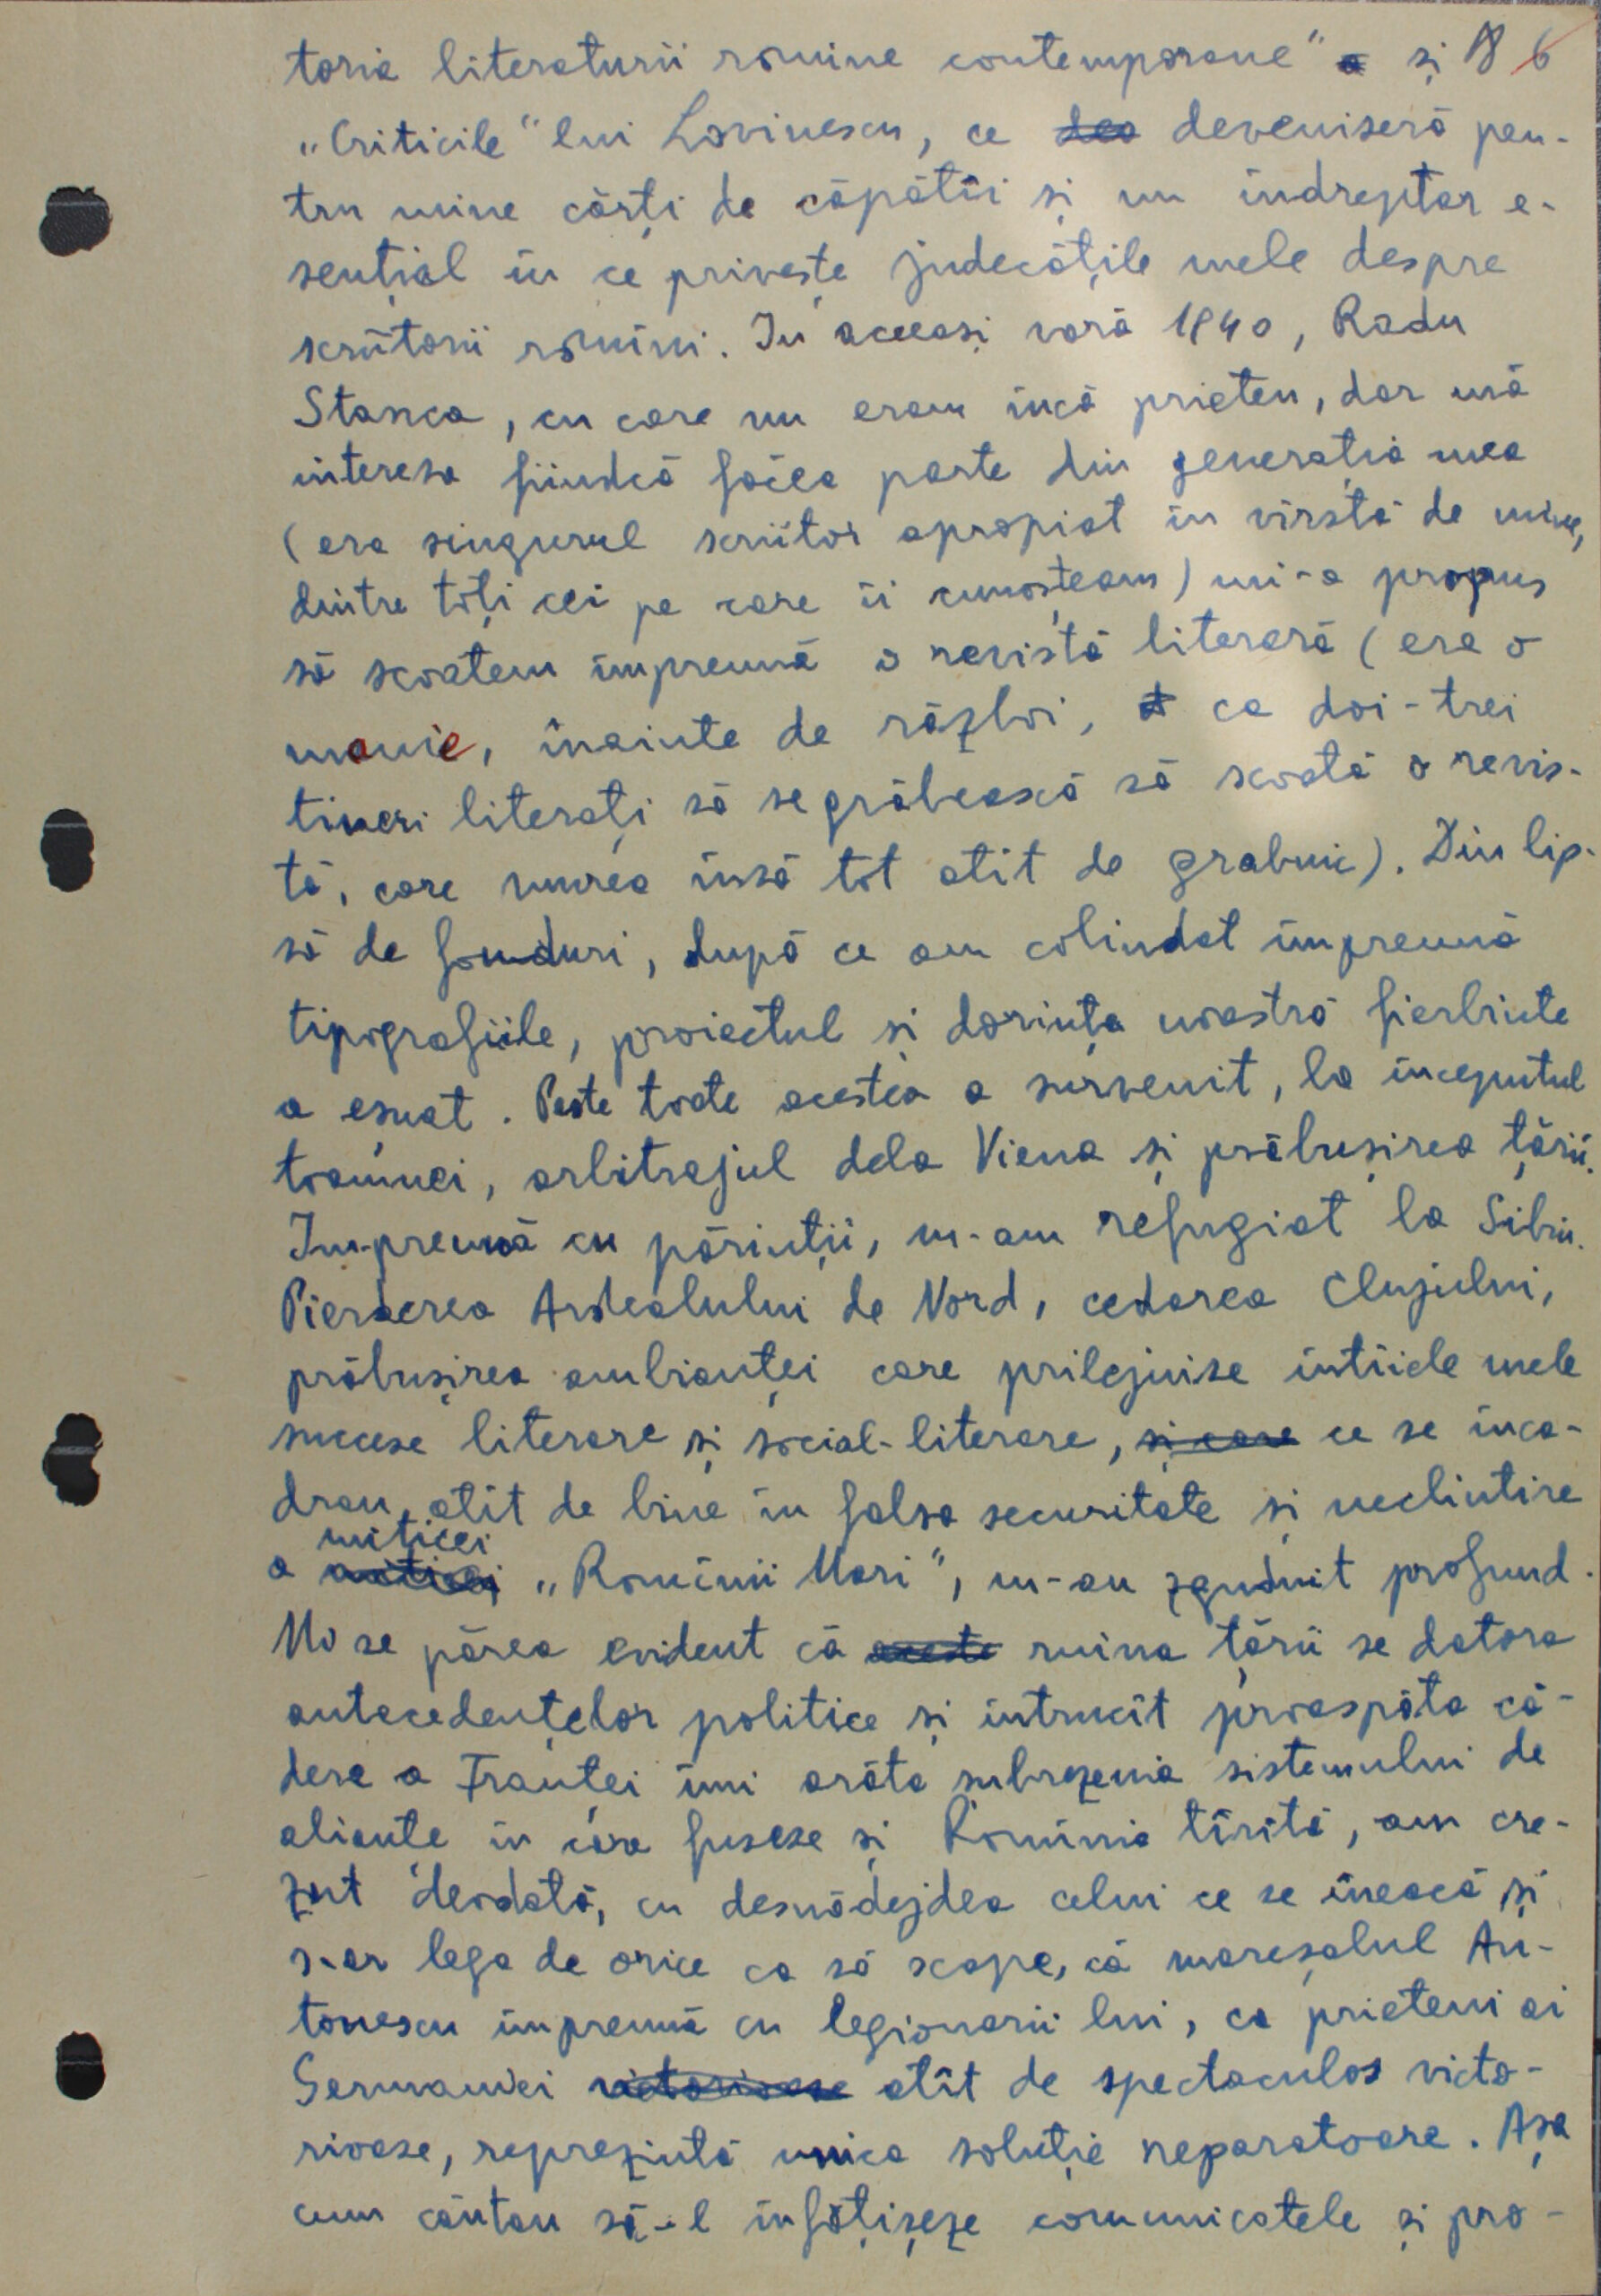 toria literaturii romîne contemporane" și 8 6
„Criticile" lui Lovinescu, ce deveniseră pen-
tru mine cărți de căpătîi și un îndreptar e-
sențial în ce privește judecățile mele despre
scriitorii romîni. In aceeași vară 1940, Radu
Stanca, cu care nu eram încă prieten, dar mă
interesa fiindcă făcea parte din generația mea
(era singurul scriitor apropiat în vîrstă de mine,
dintre toți cei pe care îi cunoșteam) mi-a propus
să scoatem împreună o revistă literară (era o
manie, înainte de război, ca doi-trei
tineri literați să se grăbească să scoată o revis-
tă, care murea însă tot atît de grabnic). Din lip-
să de fonduri, după ce am colindat împreună
tipografiile, proiectul și dorința noastră fierbinte
a eșuat. Peste toate acestea a survenit, la începutul
toamnei, arbitrajul dela Viena și prăbușirea țării.
Impreună cu părinții, m-am refugiat la Sibiu.
Pierderea Ardealului de Nord, cedarea Clujului,
prăbușirea ambianței care prilejuise întîiele mele
succese literare și social-literare, și care ce se înca-
drau atît de bine în falsa securitate și neclintire
a miticei „Romînii Mari", m-au zguduit profund.
Mi se părea evident că aceste ruina țării se datora
antecedențelor politice și întrucît proaspăta că-
dere a Franței îmi arăta șubrezenia sistemului de
alianțe în care fusese și Romînia tîrîtă, am cre-
zut deodată, cu desnădejdea celui ce se îneacă și
s-ar lega de orice ca să scape, că mareșalul An-
tonescu împreună cu legionarii lui, ca prieteni ai
Germaniei victorioase atît de spectaculos victo-
rioase, reprezintă unica soluție reparatoare. Așa
cum căutau să-l înfățișeze comunicatele și pro-